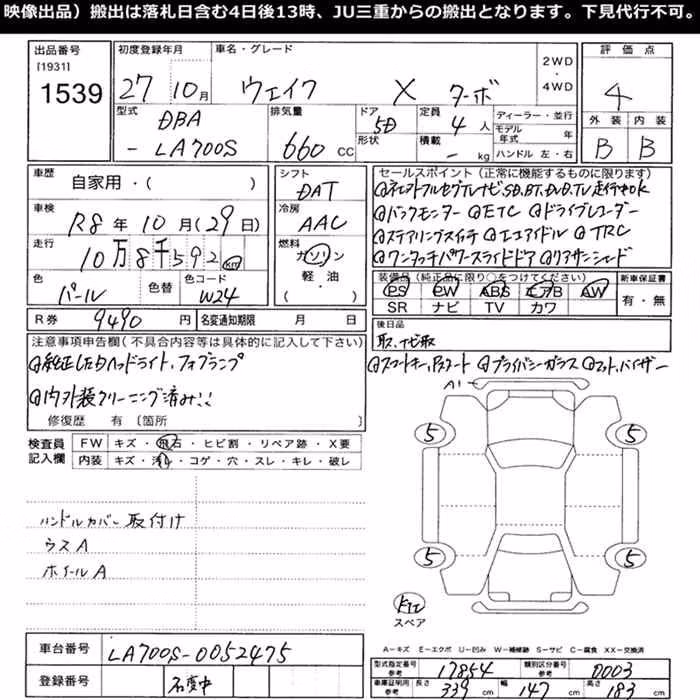 映像出品）搬出は落札日含む4日後13時、JU三重からの搬出となります。下見代行不可。
出品番号
[1931]
1539
初度登録年月
27年10月
車名・グレード
ウェイク X ターボ
2WD
・
4WD
評価点
4
外装 内装
B B
型式
DBA
- LA700S
排気量
660 CC
ドア
5D
形状
定員
4人
積載
- kg
ディーラー・並行
モデル年式 年
ハンドル 左・右
車歴
自家用・( )
車検
R8年10月(29日)
走行
10万8千592km
色
パール
色替
色コード
W24
シフト
DAT
冷房
AAC
燃料
ガソリン
軽・油
( )
セールスポイント（正常に機能するものに限ります）
@ネオトフルセグTVナビSD.BT.DVD.TV走行中OK
@バックモニター @ETC @ドライブレコーダー
@ステアリングスイッチ @エコアイドル @TRC
@ワンタッチパワースライドドア @リアサンシェード
装備品（純正品に限り○をつけてください）
PS PW ABS エアB AW
SR ナビ TV カワ
新車保証書
有・無
後日品
取、ナビ取
R券 9490円
名変通知期限 月 日
@スマートキー,Pスタート @プライバシーガラス @マット,バイザー
注意事項申告欄（不具合内容等は具体的に記入して下さい）
@純正LEDヘッドライト,フォグランプ
@内外装クリーニング済み!!
修復歴 有〔箇所
検査員
記入欄
FW キズ・飛石・ヒビ割・リペア跡・X要
内装 キズ・汚れ・コゲ・穴・スレ・キレ・破レ
ハンドルカバー取付け
ウスA
ホイールA
A1
5 5
5 5
スペア
A－キズ E－エクボ U－凹み W－補修跡 S－サビ C－腐食 XX－交換済
車台番号
LA700S-0052475
登録番号
名変中
型式指定番号
参考
17854
類別区分番号
参考
0003
車庫証明用
参考
長さ 339cm 幅 147cm 高さ 183cm